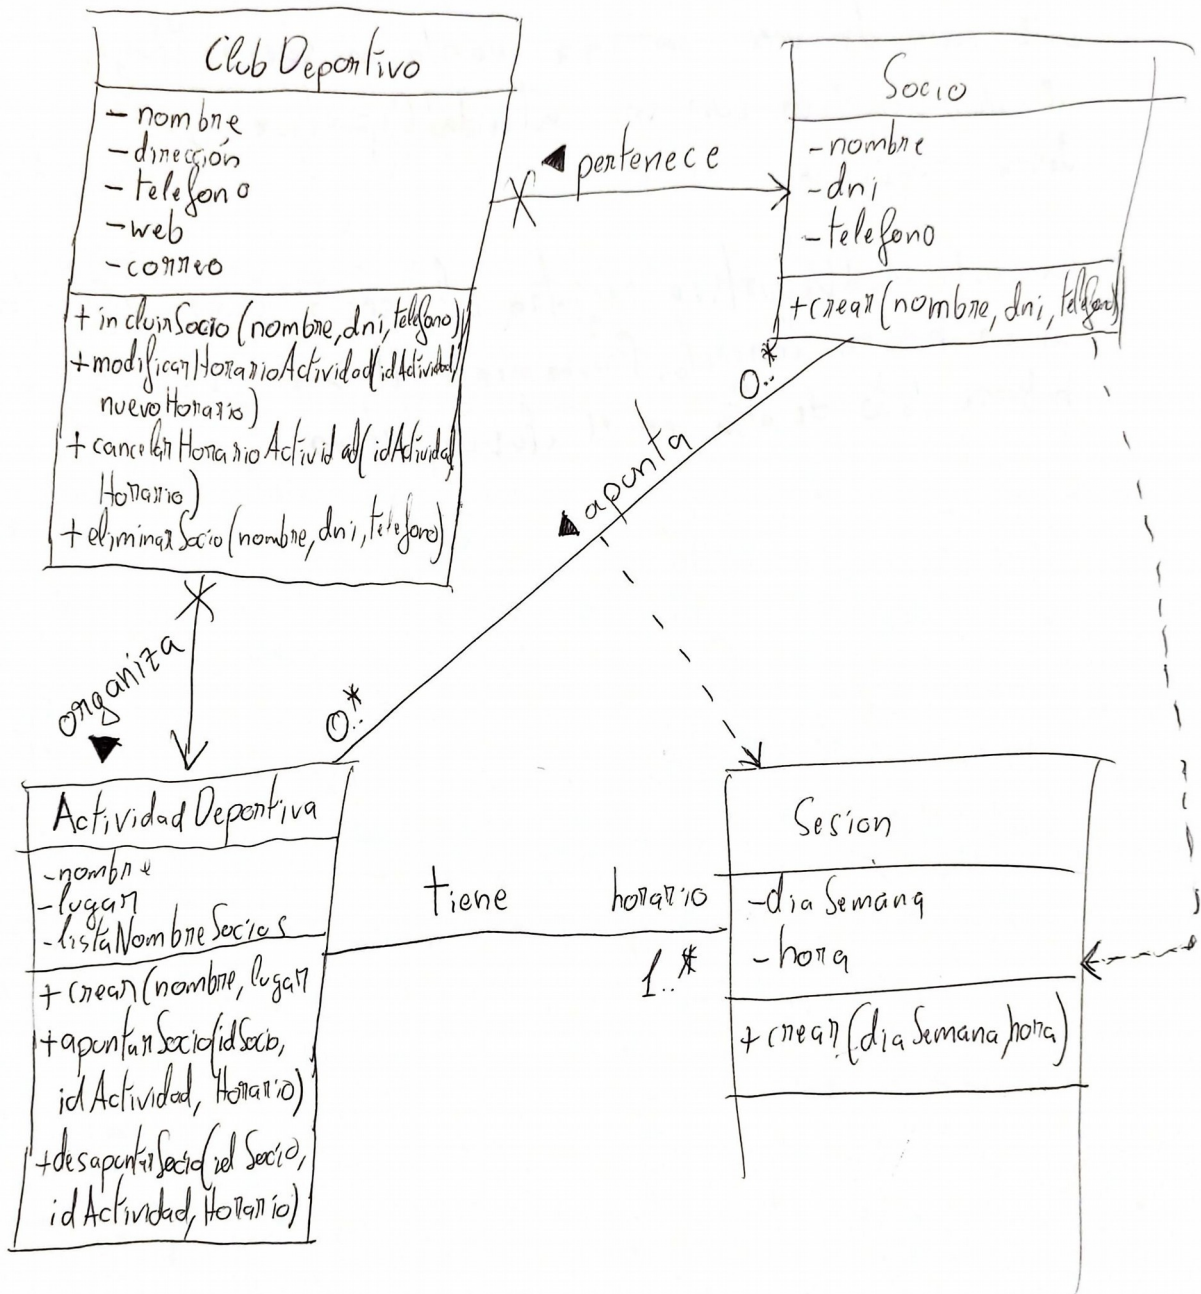 Club Deportivo
- nombre
- dirección
- telefono
- web
- correo
+ incluirSocio (nombre, dni, telefono)
+ modificarHorarioActividad (idActividad,
nuevoHorario)
+ cancelarHorarioActividad (idActividad,
Horario)
+ eliminarSocio (nombre, dni, telefono)
pertenece
Socio
- nombre
- dni
- telefono
+ crear (nombre, dni, telefono)
0..*
apunta
0..*
organiza
Actividad Deportiva
- nombre
- lugar
- listaNombreSocios
+ crear (nombre, lugar
+ apuntarSocio (idSocio,
idActividad, Horario)
+ desapuntarSocio (idSocio,
idActividad, Horario)
tiene
horario
1..*
Sesion
- diaSemana
- hora
+ crear (diaSemana, hora)